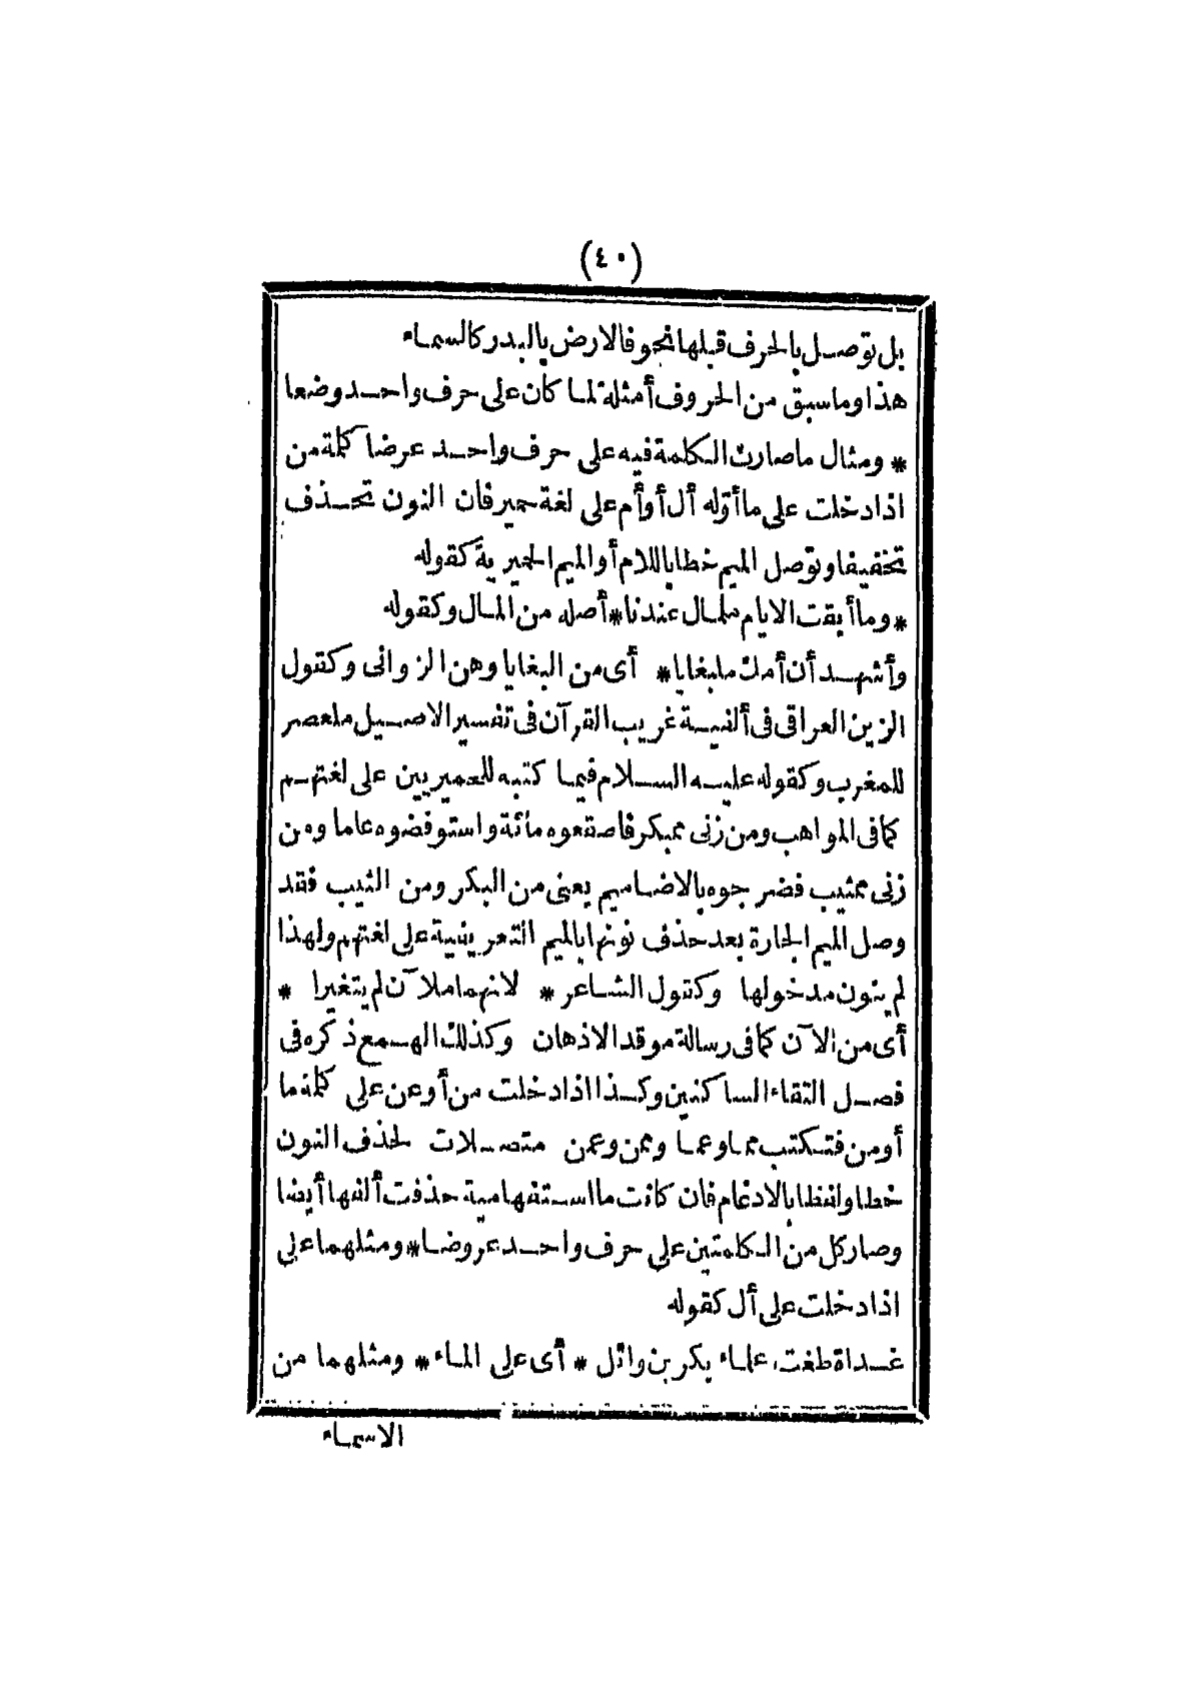 (٤٠)
بل توصل بالحرف قبلها نحو فالارض بالبدر كالسماء
هذا وما سبق من الحروف أمثلة لما كان على حرف واحد وضعا
* ومثال ما صارت الكلمة فيه على حرف واحد عرضا كلمة من
اذا دخلت على ما أوّله أل أو أم على لغة حمير فان النون تحذف
تخفيفا وتوصل الميم خطا باللام أو الميم الحميرية كقوله
* وما أبقت الايام ملمال عندنا * أصله من المال وكقوله
وأشهد أن أمك ملبغايا * أى من البغايا وهن الزوانى وكقول
الزين العراقى فى ألفية غريب القرآن فى تفسير الاصيل ملعصر
للمغرب وكقوله عليه السلام فيما كتبه للحميريين على لغتهم
كما فى المواهب ومن زنى ممبكر فاصقعوه مائة واستوفضوه عاما ومن
زنى ممثيب فضرجوه بالاضاميم يعنى من البكر ومن الثيب فقد
وصل الميم الجارة بعد حذف نونها بالميم التعريفية على لغتهم ولهذا
لم ينون مدخولها وكقول الشاعر * لانهما ملآن لم يتغيرا *
أى من الآن كما فى رسالة موقد الاذهان وكذلك الهمع ذكره فى
فصل التقاء الساكنين وكذا اذا دخلت من أو عن على كلمة ما
أو من فتكتب مما وعما وممن وعمن متصلات لحذف النون
خطا ولفظا بالادغام فان كانت ما استفهامية حذفت ألفها أيضا
وصار كل من الكلمتين على حرف واحد عروضا * ومثلهما على
اذا دخلت على أل كقوله
غداة طفت علماء بكر بن وائل * أى على الماء * ومثلهما من
الاسماء